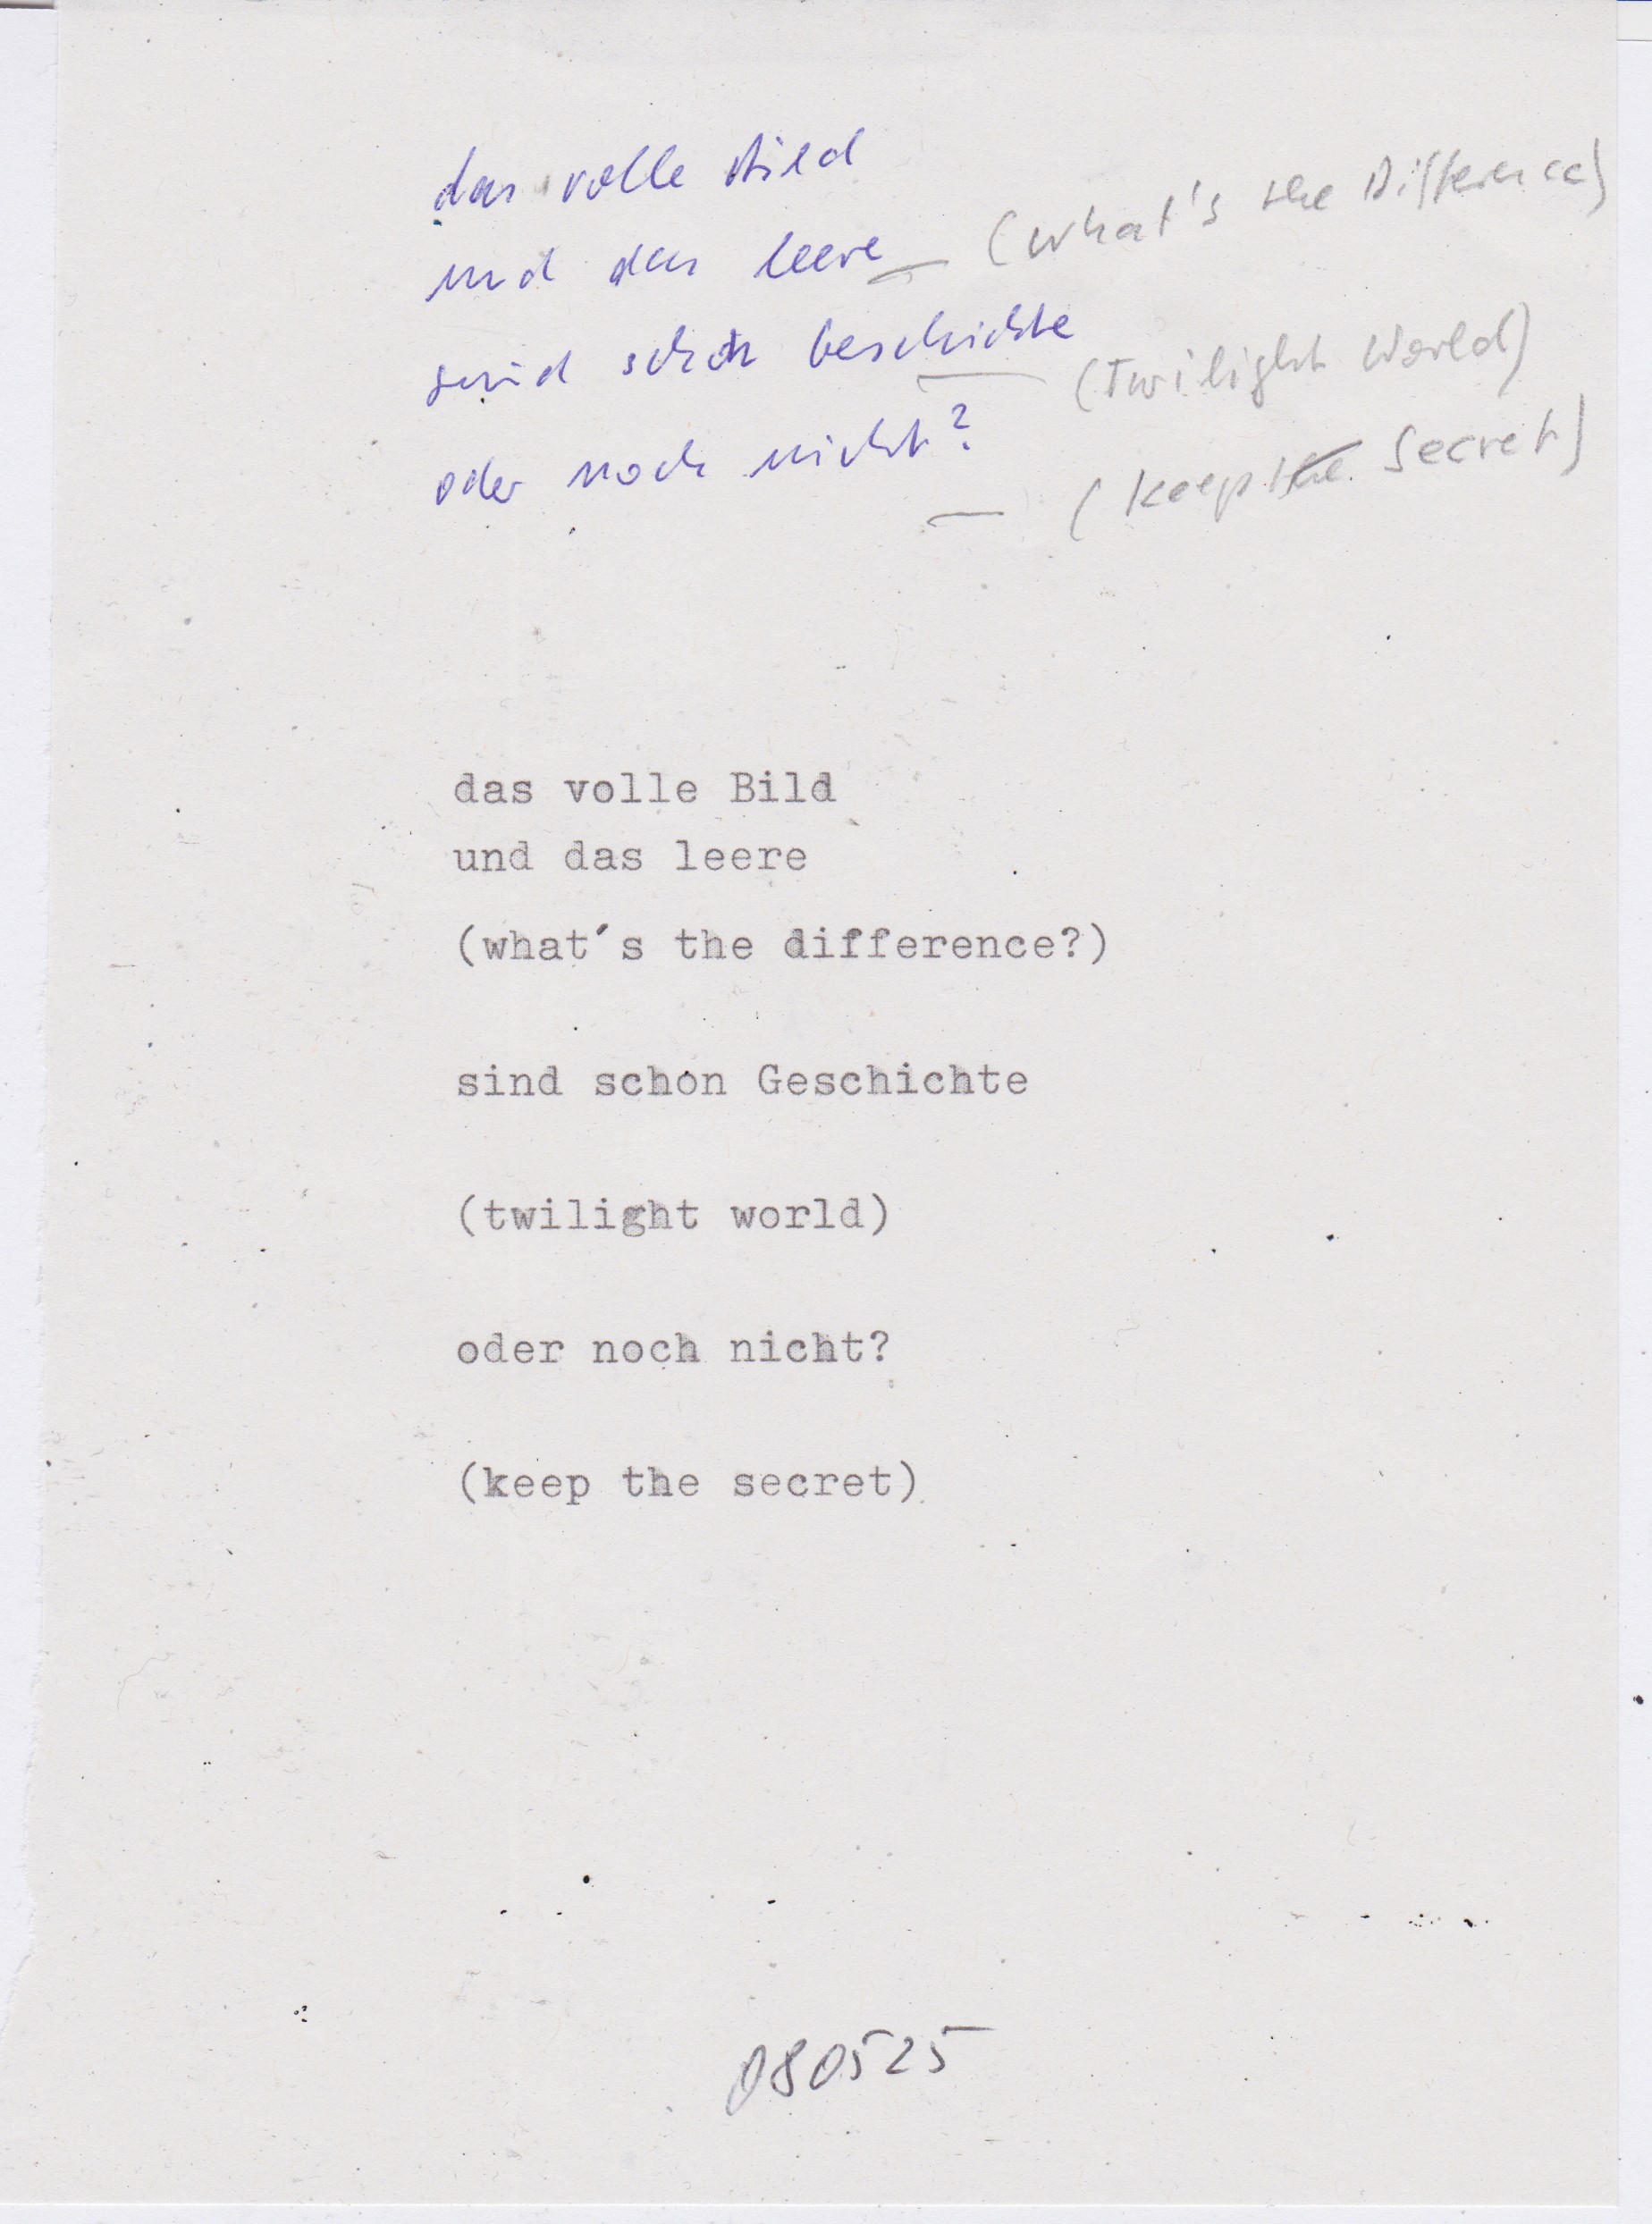 das volle Bild
und das leere – (what's the Difference)
sind schon Geschichte
(Twilight World)
oder noch nicht?
– (keep the Secret)
das volle Bild
und das leere
(what´s the difference?)
sind schon Geschichte
(twilight world)
oder noch nicht?
(keep the secret)
080525